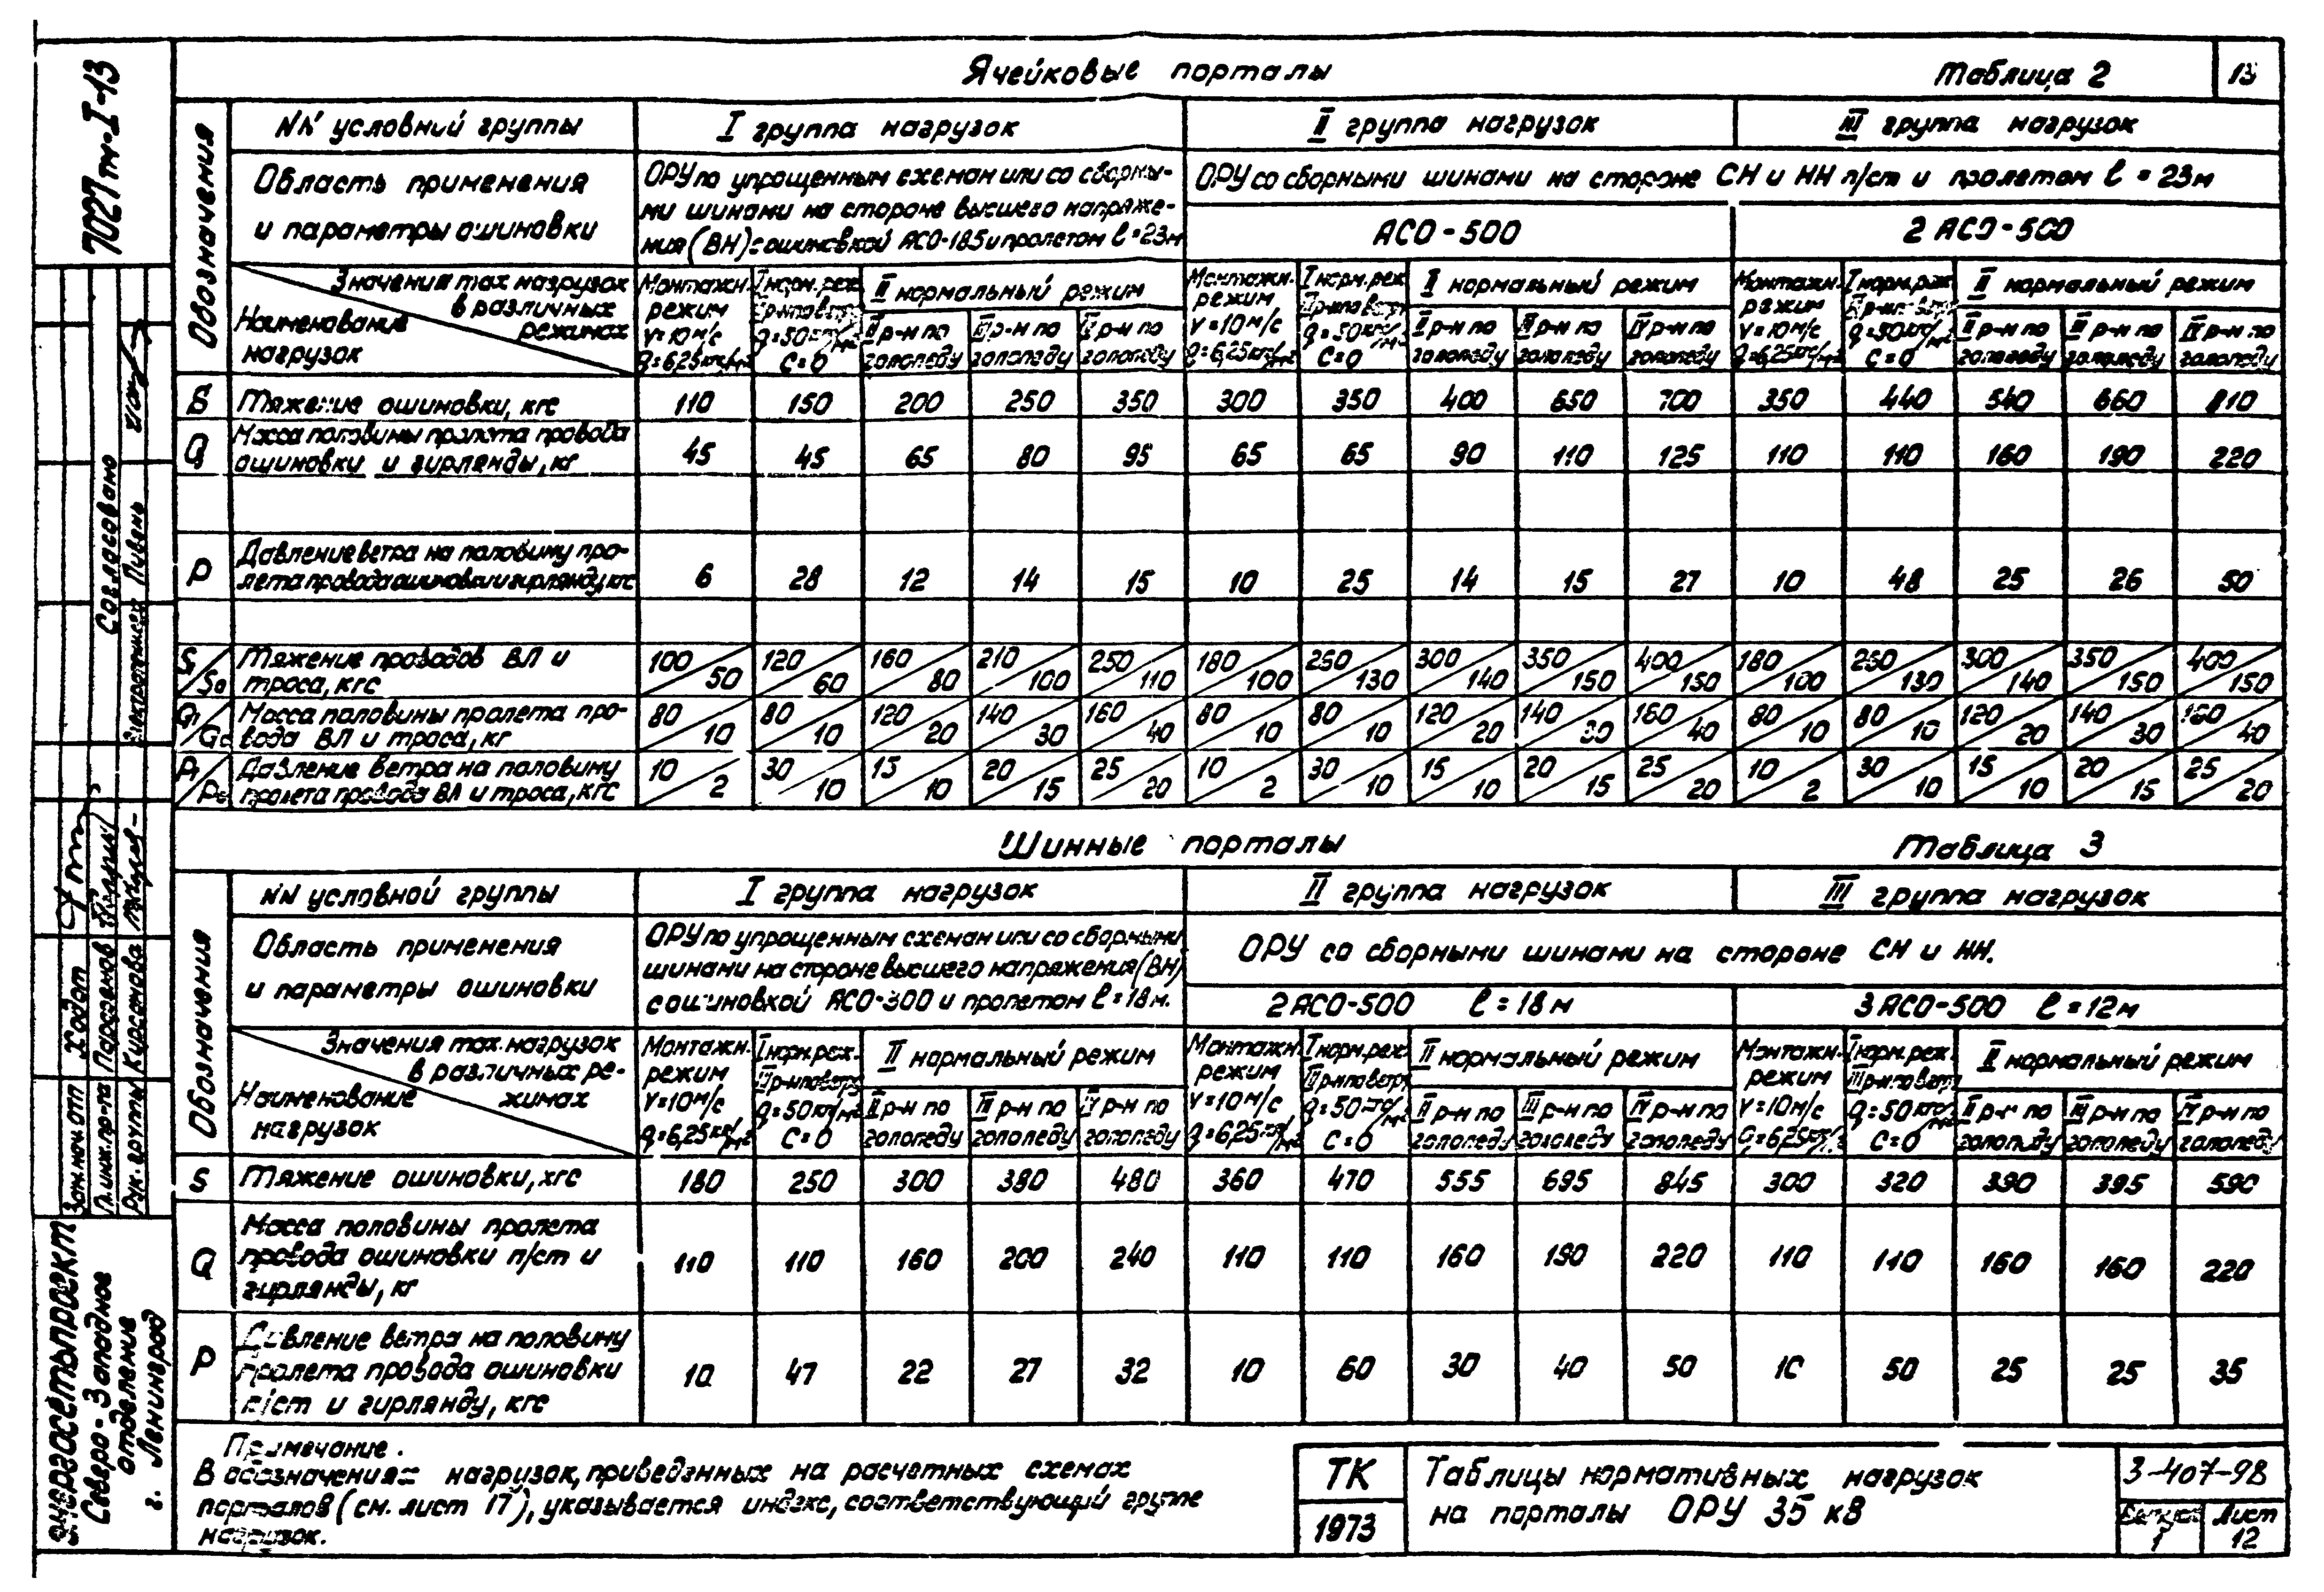 Ячейковые порталы Таблица 2 13
Обозначения
NN условний группы I группа нагрузок II группа нагрузок III группа нагрузок
Область применения
и параметры ошиновки
ОРУ по упрощенным схемам или со сборны-
ми шинами на стороне высшего напряже-
ния (ВН) с ошиновкой АСО-185 и пролетом l=23м
ОРУ со сборными шинами на стороне СН и НН п/ст и пролетом l = 23м
АСО-500 2 АСО-500
Значения max нагрузок
в различных
режимах
Наименование
нагрузок
Монтажн. режим V=10м/с q=6,25кгс/м² I норм. реж. III р-н по ветру q=50кгс/м² C=0 II нормальный режим II р-н по гололеду III р-н по гололеду IV р-н по гололеду
Монтажн. режим V=10м/с q=6,25кгс/м² I норм. реж. III р-н по ветру q=50кгс/м² C=0 II нормальный режим II р-н по гололеду III р-н по гололеду IV р-н по гололеду
Монтажн. режим V=10м/с q=6,25кгс/м² I норм. реж. III р-н по ветру q=50кгс/м² C=0 II нормальный режим II р-н по гололеду III р-н по гололеду IV р-н по гололеду
S Тяжение ошиновки, кгс 110 150 200 250 350 300 350 400 650 700 350 440 540 660 810
Q Масса половины пролета провода
ошиновки и гирлянды, кг 45 45 65 80 95 65 65 90 110 125 110 110 160 190 220
P Давление ветра на половину про-
лета провода ошиновки и гирлянду, кгс 6 28 12 14 15 10 25 14 15 27 10 48 25 26 50
S1/S0 Тяжение проводов ВЛ и
троса, кгс 100/50 120/60 160/80 210/100 250/110 180/100 250/130 300/140 350/150 400/150 180/100 250/130 300/140 350/150 400/150
Q1/Q0 Масса половины пролета про-
вода ВЛ и троса, кг 80/10 80/10 120/20 140/30 160/40 80/10 80/10 120/20 140/30 160/40 80/10 80/10 120/20 140/30 160/40
P1/P0 Давление ветра на половину
пролета провода ВЛ и троса, кгс 10/2 30/10 15/10 20/15 25/20 10/2 30/10 15/10 20/15 25/20 10/2 30/10 15/10 20/15 25/20
Шинные порталы Таблица 3
Обозначения
NN условной группы I группа нагрузок II группа нагрузок III группа нагрузок
Область применения
и параметры ошиновки
ОРУ по упрощенным схемам или со сборными
шинами на стороне высшего напряжения (ВН)
с ошиновкой АСО-300 и пролетом l=18м.
ОРУ со сборными шинами на стороне СН и НН.
2 АСО-500 l = 18м 3 АСО-500 l = 12м
Значения max. нагрузок
в различных ре-
жимах
Наименование
нагрузок
Монтажн. режим V=10м/с q=6,25кгс/м² I норм. реж. III р-н по ветру q=50кгс/м² C=0 II нормальный режим II р-н по гололеду III р-н по гололеду IV р-н по гололеду
Монтажн. режим V=10м/с q=6,25кгс/м² I норм. реж. III р-н по ветру q=50кгс/м² C=0 II нормальный режим II р-н по гололеду III р-н по гололеду IV р-н по гололеду
Монтажн. режим V=10м/с q=6,25кгс/м² I норм. реж. III р-н по ветру q=50кгс/м² C=0 II нормальный режим II р-н по гололеду III р-н по гололеду IV р-н по гололеду
S Тяжение ошиновки, кгс 180 250 300 380 480 360 470 555 695 845 300 320 390 395 590
Q Масса половины пролета
провода ошиновки п/ст и
гирлянды, кг 110 110 160 200 240 110 110 160 190 220 110 110 160 160 220
P Давление ветра на половину
пролета провода ошиновки
п/ст и гирлянду, кгс 10 47 22 27 32 10 60 30 40 50 10 50 25 25 35
Примечание.
В обозначениях нагрузок, приведенных на расчетных схемах
порталов (см. лист 17), указывается индекс, соответствующий группе
нагрузок.
ТК
1973
Таблицы нормативных нагрузок
на порталы ОРУ 35 кВ
3-407-98
Выпуск 1
Лист 12
7027тм-I-13
Согласовано
Пивень
Зам. нач. отп Ходот
Гл. инж. пр-та Парфенов
Рук. группы Курсанова
Энергосетьпроект
Северо-Западное
отделение
г. Ленинград